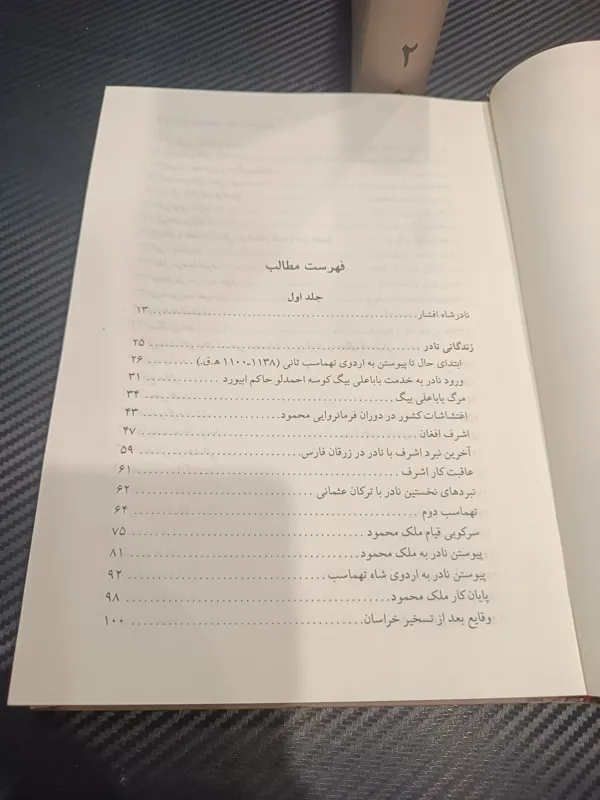 ۲
فهرست مطالب
جلد اول
نادرشاه افشار ۱۳
زندگانی نادر ۲۵
ابتدای حال تا پیوستن به اردوی تهماسب ثانی (۱۱۳۸-۱۱۰۰ ه.ق.) ۲۶
ورود نادر به خدمت باباعلی بیگ کوسه احمدلو حاکم ابیورد ۳۱
مرگ باباعلی بیگ ۳۴
اغتشاشات کشور در دوران فرمانروایی محمود ۴۳
اشرف افغان ۴۷
آخرین نبرد اشرف با نادر در زرقان فارس ۵۹
عاقبت کار اشرف ۶۱
نبردهای نخستین نادر با ترکان عثمانی ۶۲
تهماسب دوم ۶۴
سرکوبی قیام ملک محمود ۷۵
پیوستن نادر به ملک محمود ۸۱
پیوستن نادر به اردوی شاه تهماسب ۹۲
پایان کار ملک محمود ۹۸
وقایع بعد از تسخیر خراسان ۱۰۰